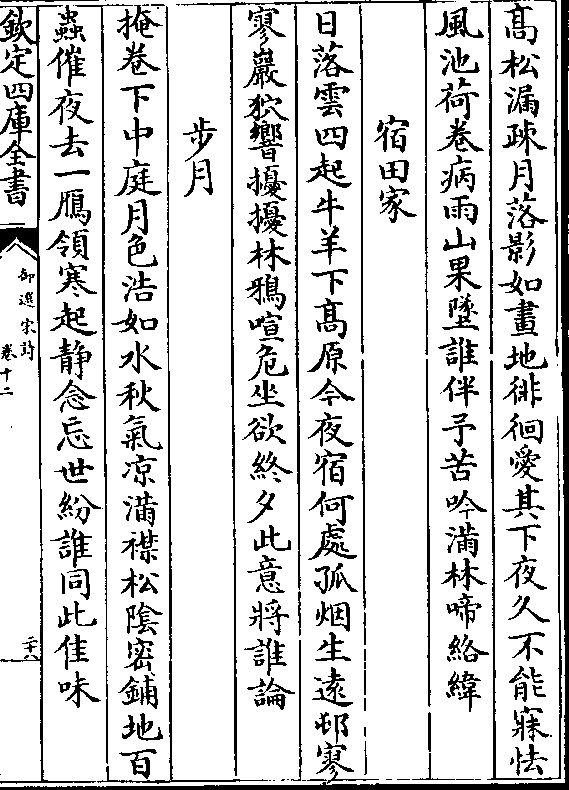 髙松漏疎月落影如畫地徘徊愛其下夜久不能寐怯
風池荷卷病雨山果墜誰伴予苦吟滿林啼絡緯
宿田家
日落雲四起牛羊下髙原今夜宿何處孤烟生逺邨寥
寥巖狖響擾擾林鴉喧危坐欲終夕此意將誰論
步月
掩卷下中庭月色浩如水秋氣凉滿襟松陰密鋪地百
蟲催夜去一鴈領寒起静念忘世紛誰同此佳味
欽定四庫全書
御選宋詩
卷十二
二十八